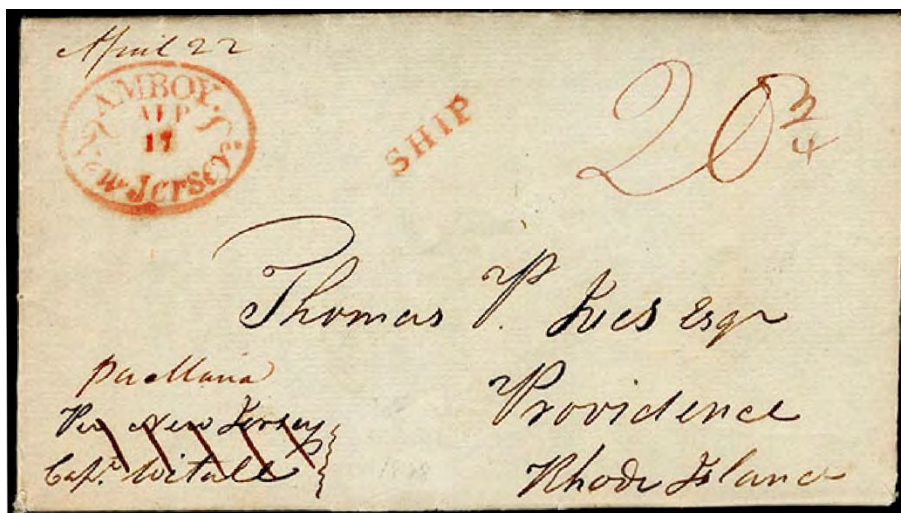 April 22
AMBOY. J.
APR
17
New-Jersey.
SHIP
20 3/4
Thomas P. Ives Esqr
Providence
Rhode Island
Per Maria
Per New Jersey
Capt.